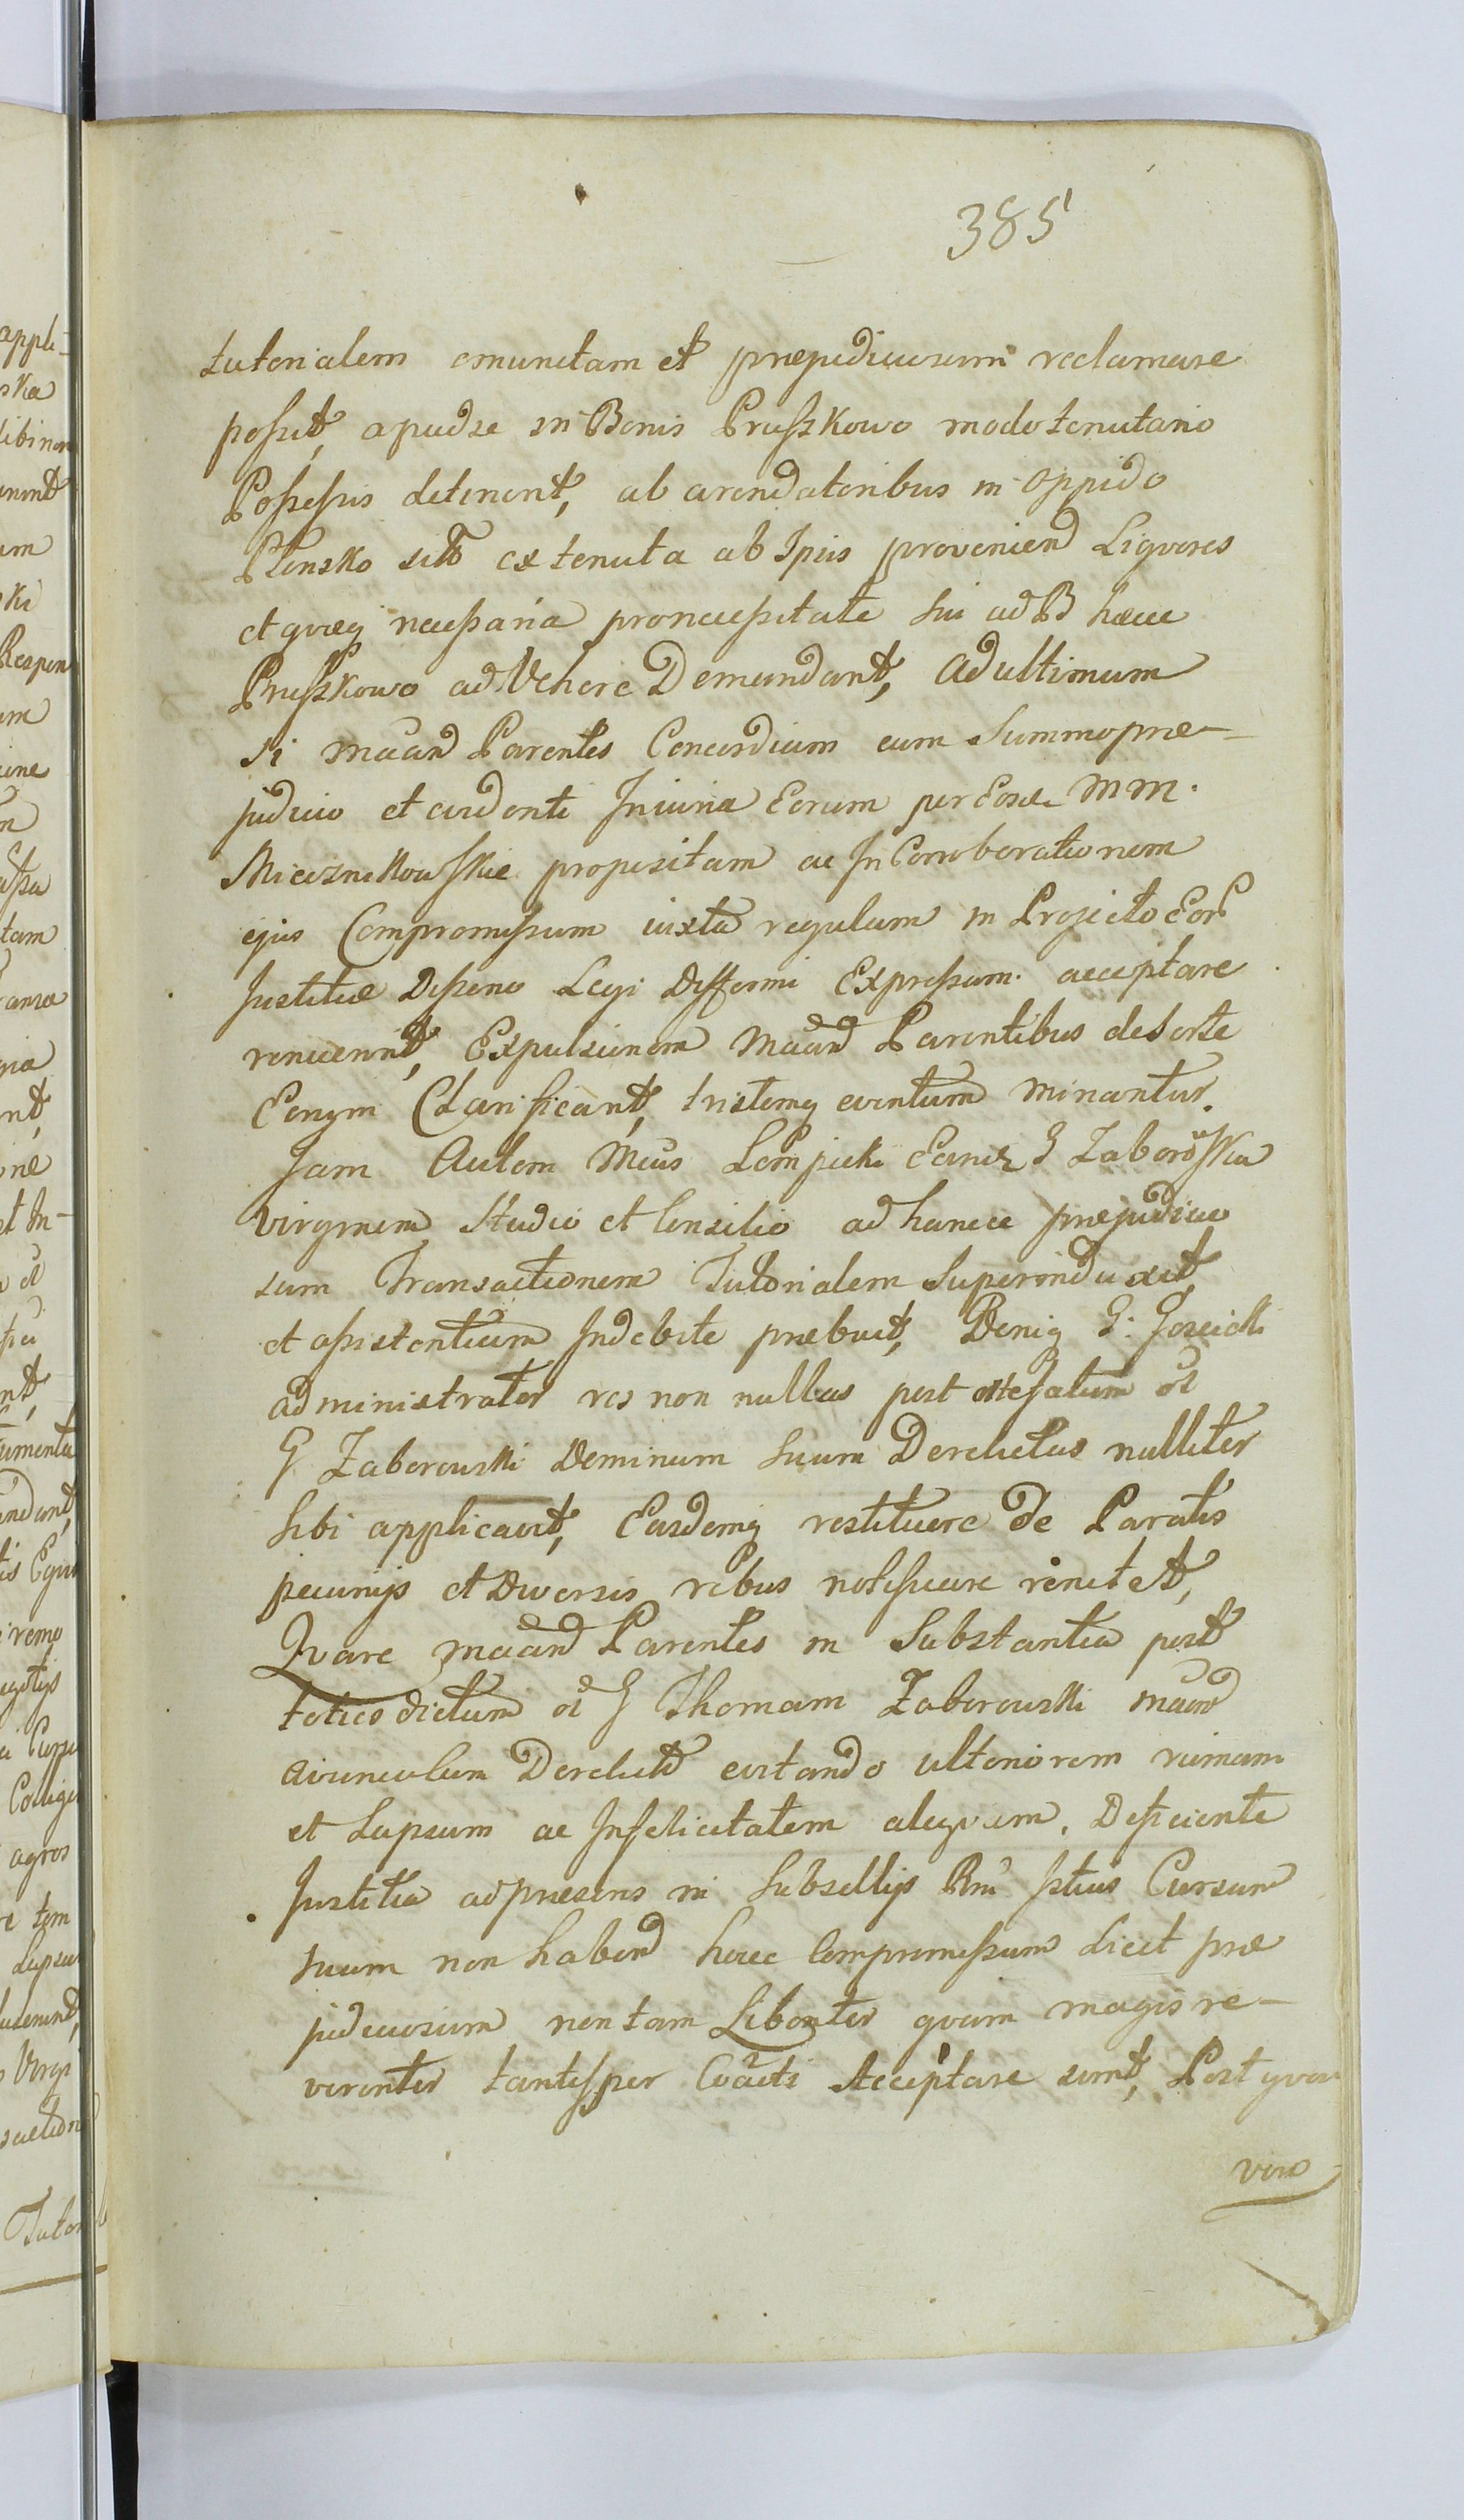 385
tutorialem emunctam et præjudiciosam reclamare
possit, apud se in Bonis Prusskowo modo tenutario
Possessis detinent, ab arendatoribus in oppido
Plonsko sito ex tenuta ab Ipsis provenien Liquores
et quæq necessaria pro necessitate sui ad B hæcce
Prusskowo advehere Demandant, ad ultimum
si Mãan Parentes Concordiam cum summo præ-
judicio et evidenti Iniuria Eorum per Eosde MM.
Miecznikowskie propositam ac In Corroborationem
ejus Compromissum iuxta regulam in Projecto Eor
Justitiæ Disseno Legi Difformi Expressum acceptare
renuerint, Expulsionem Mãan Parentibus de sorte
Eorum Clarificant, tristemq eventum minantur.
Jam Autem Mcus Lempicki Eande G Zaborowska
virginem studio et Consilio ad hancce præjudicio
sam Transactionem Tutorialem Superinduxit
et assistentiam Indebite præbuit, Deniq G:
administrator res non nullas post
G Zaborowski Dominum suum Derelictas nulliter
sibi applicavit, Easdemq restituere de Paratis
pecunijs et Diversis rebus notificare renitet,
Qvare mãan Parentes in Substantia post
toties dictum ol G Thomam Zaborowski mãan
avunculum Derelict evitando ulteriorem ruinam
et Lapsum ac Infelicitatem aliqvam. Deficiente
Justitia ad præsens in Subsellijs Rni Istius Cursum
suum non haben hocce Compromissum licet præ
judiciosum non tam Libenter qvam magis re-
verenter tantisper Coacti Acceptare sunt, Post qvam
vero